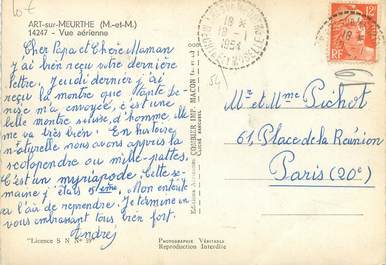 ART-sur-MEURTHE (M.-et-M.)
14247 - Vue aérienne
Cher Papa et Chère Maman
j'ai bien reçu votre dernière
lettre. Jeudi dernier j'ai
reçu la montre que tante De-
nise m'a envoyée, c'est une
belle montre suisse, d'homme, elle
me va très bien. En histoire
naturelle nous avons appris la
scolopendre ou mille-pattes.
C'est un myriapode. Cette se-
maine j'étais 5ème. Mon
a l'air de reprendre. Je termine en
vous embrassant tous bien fort.
André
"Licence S N N° 39"
PHOTOGRAPHIE VÉRITABLE
Reproduction Interdite
COMBIER IMP. MACON
18 H
19 - 1
1954
12F
RF
Mr et Mme Pichot
61, Place de la Réunion
Paris (20e)